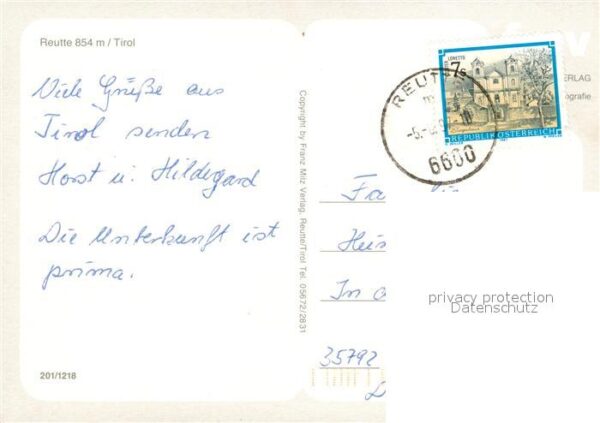 Reutte 854 m / Tirol
Viele Grüße aus
Tirol senden
Horst u. Hildegard
Die Unterkunft ist
prima.
201/1218
Copyright by Franz Milz Verlag, Reutte/Tirol Tel. 05672/2831
LORETTO
7 S
REPUBLIK ÖSTERREICH
REUTTE
6600
ERLAG
ografie
Fa
Hein
In
35792
privacy protection
Datenschutz